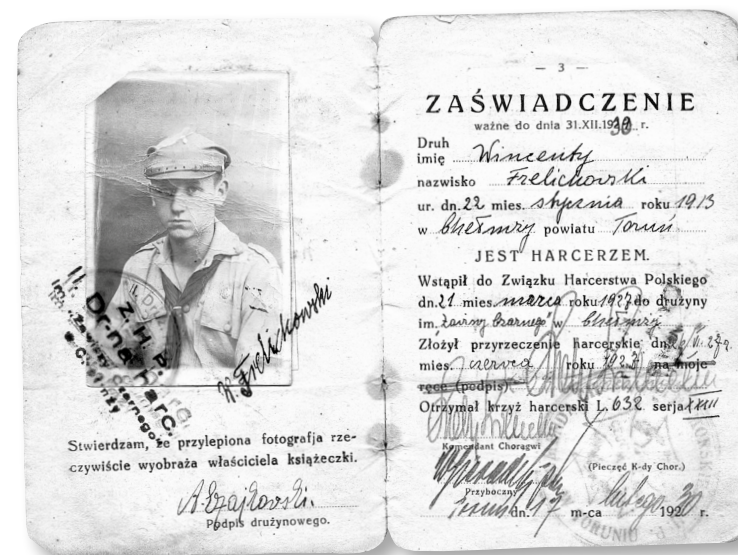 II. Dr-na Harc.
Z. H. P.
im. Zawiszy Czarnego
w Chełmży
W. Frelichowski
Stwierdzam, że przylepiona fotografja rze-
czywiście wyobraża właściciela książeczki.
Podpis drużynowego.
— 3 —
ZAŚWIADCZENIE
ważne do dnia 31.XII.1930 r.
Druh
imię Wincenty
nazwisko Frelichowski
ur. dn. 22 mies. stycznia roku 1913
w Chełmży powiatu Toruń
JEST HARCERZEM.
Wstąpił do Związku Harcerstwa Polskiego
dn. 21 mies. marca roku 1927 do drużyny
im. Zawiszy Czarnego w Chełmży
Złożył przyrzeczenie harcerskie dn.
mies. czerwca roku 1927 na moje
ręce (podpis)
Otrzymał krzyż harcerski L. 632 serja XXIII
Komendant Chorągwi
(Pieczęć K-dy Chor.)
Przyboczny
Toruń dn. 17 m-ca lutego 1930 r.
TORUNIU